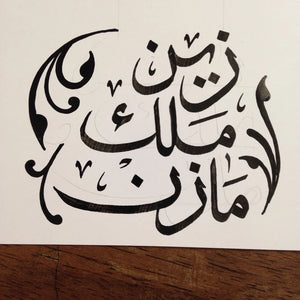 زين
ملك
مازن